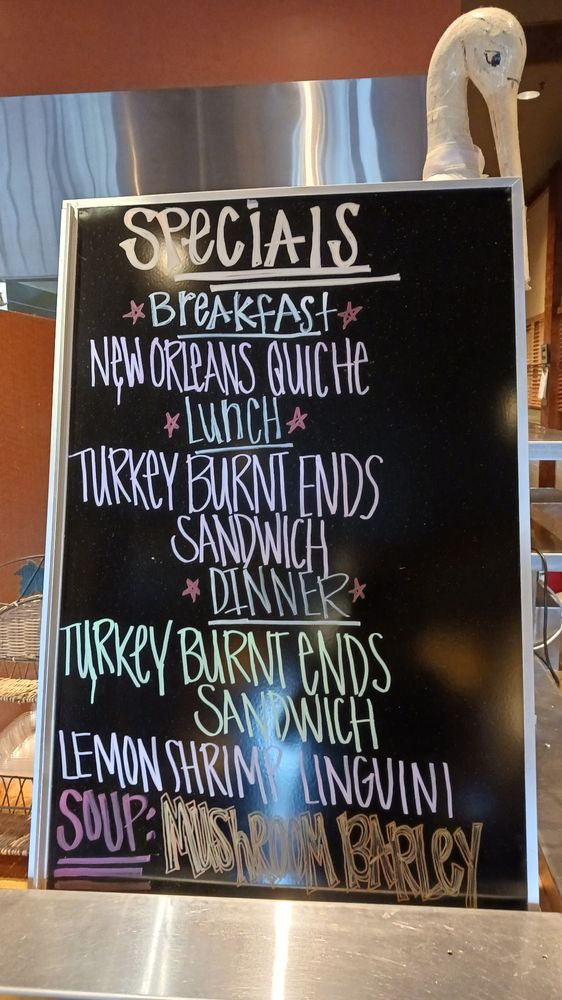 SPeCiAlS
BreAkfAst
NeW ORleANS QUiCHe
LuncH
TURKeY BURNT ENDS
SANDWICH
DINNER
TURKeY BURNT eNDS
SANDWICH
LEMON SHRIMP LINGUINI
SOUP: MUShROOM BARLEY